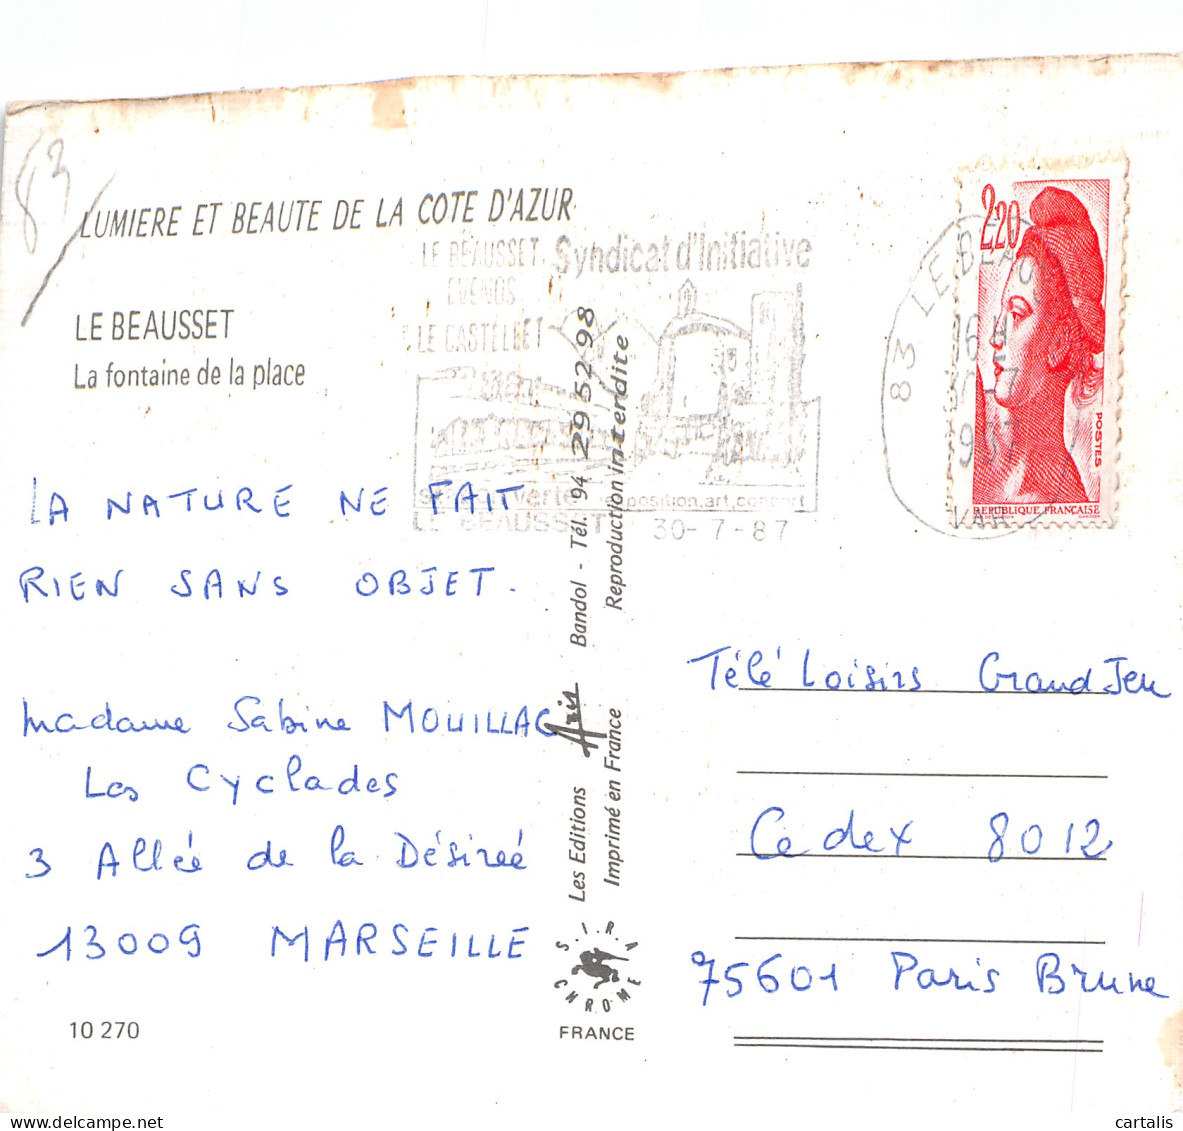 83
LUMIERE ET BEAUTE DE LA COTE D'AZUR
LE BEAUSSET
La fontaine de la place
LE BEAUSSET
EVENOS
LE CASTELLET
Syndicat d'Initiative
exposition.art.concert
LE BEAUSSET 30-7-87
83 LE BEAUS
16 H
VAR
2,20
POSTES
REPUBLIQUE FRANÇAISE
LA NATURE NE FAIT
RIEN SANS OBJET.
Madame Sabine MOUILLAC
Les Cyclades
3 Allée de la Désirée
13009 MARSEILLE
10 270
Les Editions Aris Bandol - Tél. 94 29 52 98
Imprimé en France Reproduction interdite
S.I.R.A
CHROME
FRANCE
Télé Loisirs Grand Jeu
Cedex 8012
75601 Paris Brune
cartalis